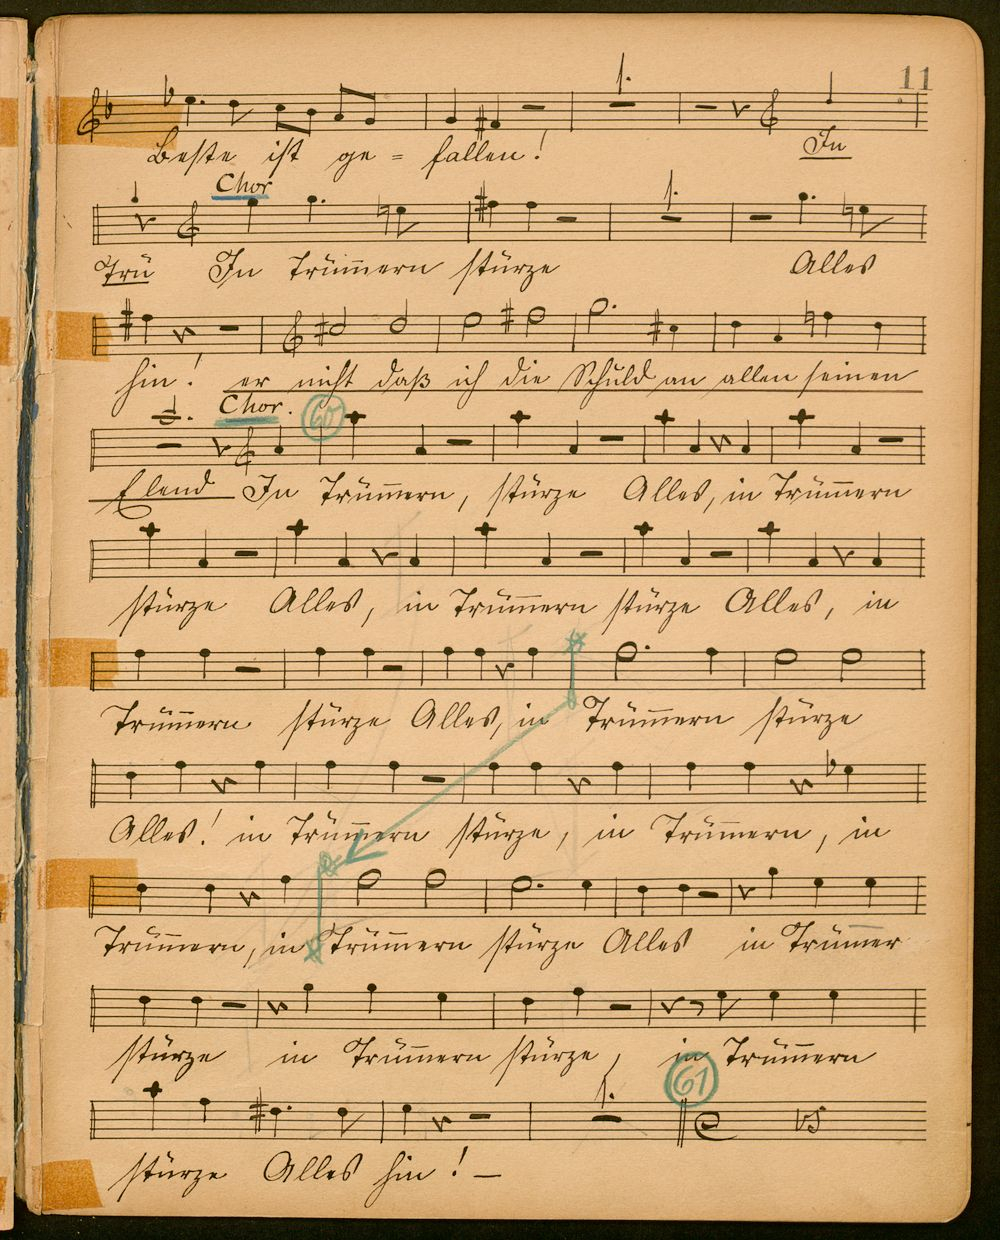 11
1.
Beste ist ge = fallen! In
Chor
1.
Trü In Trüm̅ern stürze Alles
hin! er nicht daß ich die Schuld an allen seinen
Chor. 60
Elend In Trüm̅ern, stürze Alles, in Trüm̅ern
stürze Alles, in Trüm̅ern stürze Alles, in
Trüm̅ern stürze Alles, in Trüm̅ern stürze
Alles! in Trüm̅ern stürze, in Trüm̅ern, in
Trüm̅ern, in Trüm̅ern stürze Alles in Trüm̅er
stürze in Trüm̅ern stürze, in Trüm̅ern
61
1.
VS
stürze Alles hin! —